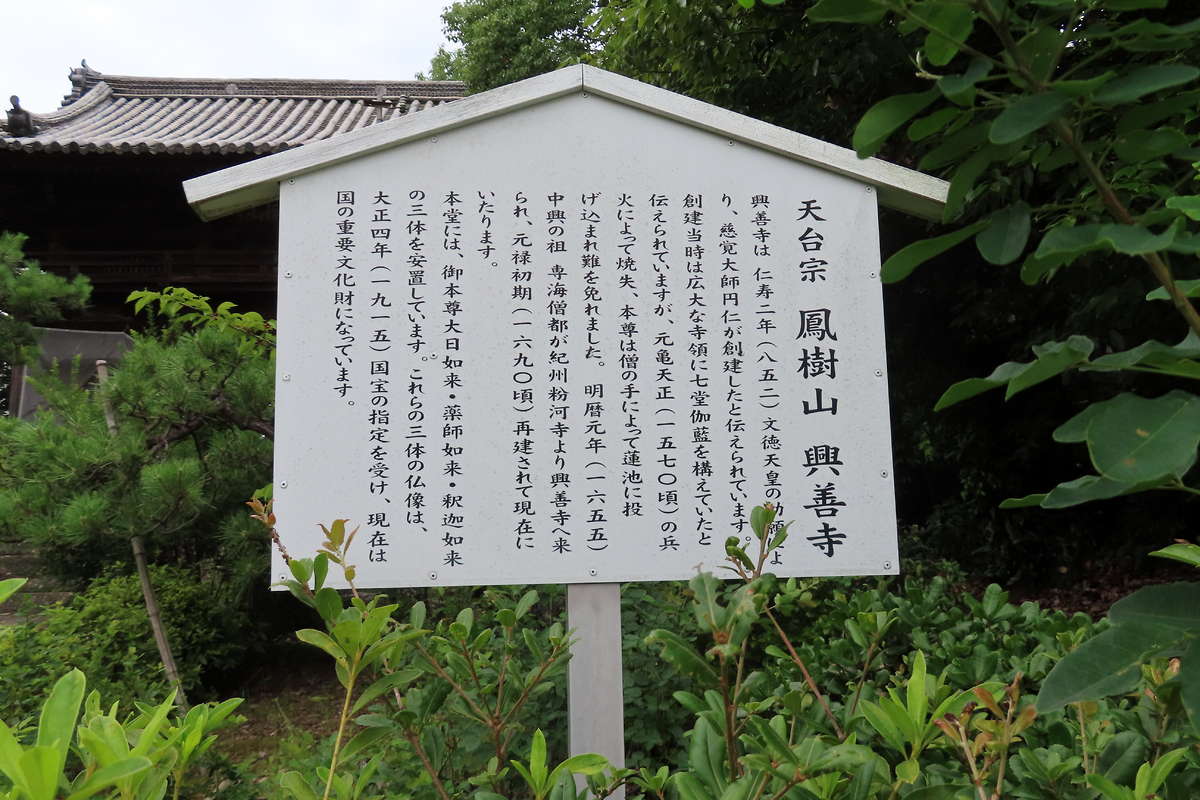 天台宗 鳳樹山 興善寺
興善寺は 仁寿二年(八五二)文徳天皇の勅願によ
り、慈覚大師円仁が創建したと伝えられています。
創建当時は広大な寺領に七堂伽藍を構えていたと
伝えられていますが、元亀天正(一五七〇頃)の兵
火によって焼失、本尊は僧の手によって蓮池に投
げ込まれ難を免れました。 明暦元年(一六五五)
中興の祖 専海僧都が紀州粉河寺より興善寺へ来
られ、元禄初期(一六九〇頃)再建されて現在に
いたります。
本堂には、御本尊大日如来・薬師如来・釈迦如来
の三体を安置しています。これらの三体の仏像は、
大正四年(一九一五)国宝の指定を受け、現在は
国の重要文化財になっています。